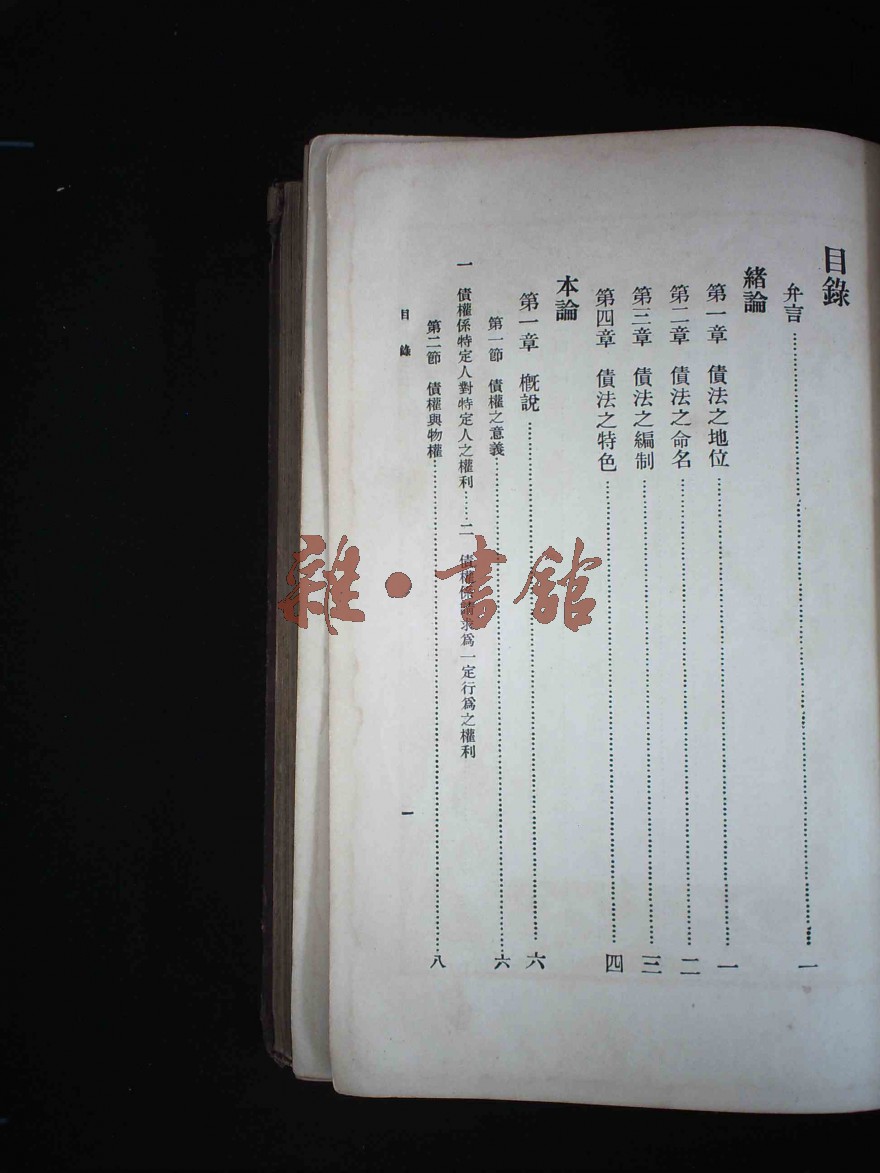 目錄
弁言……一
緒論
第一章 債法之地位……一
第二章 債法之命名……二
第三章 債法之編制……三
第四章 債法之特色……四
本論
第一章 概說……六
第一節 債權之意義……六
一 債權係特定人對特定人之權利……二 債權係請求爲一定行爲之權利
第二節 債權與物權……八
目錄
一
雜·書館